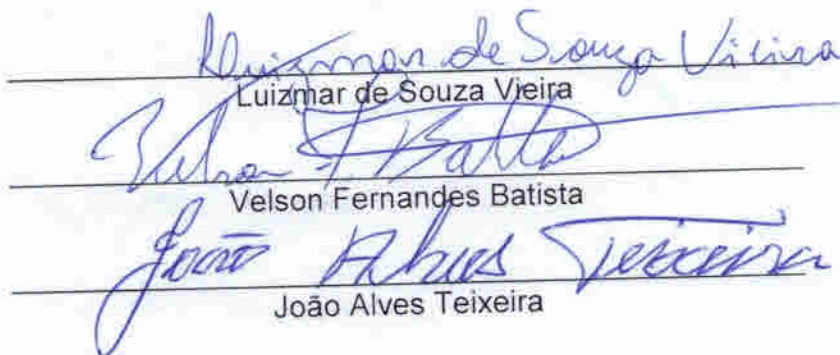 Luizmar de Souza Vieira
Luizmar de Souza Vieira
Velson F. Batista
Velson Fernandes Batista
João Alves Teixeira
João Alves Teixeira